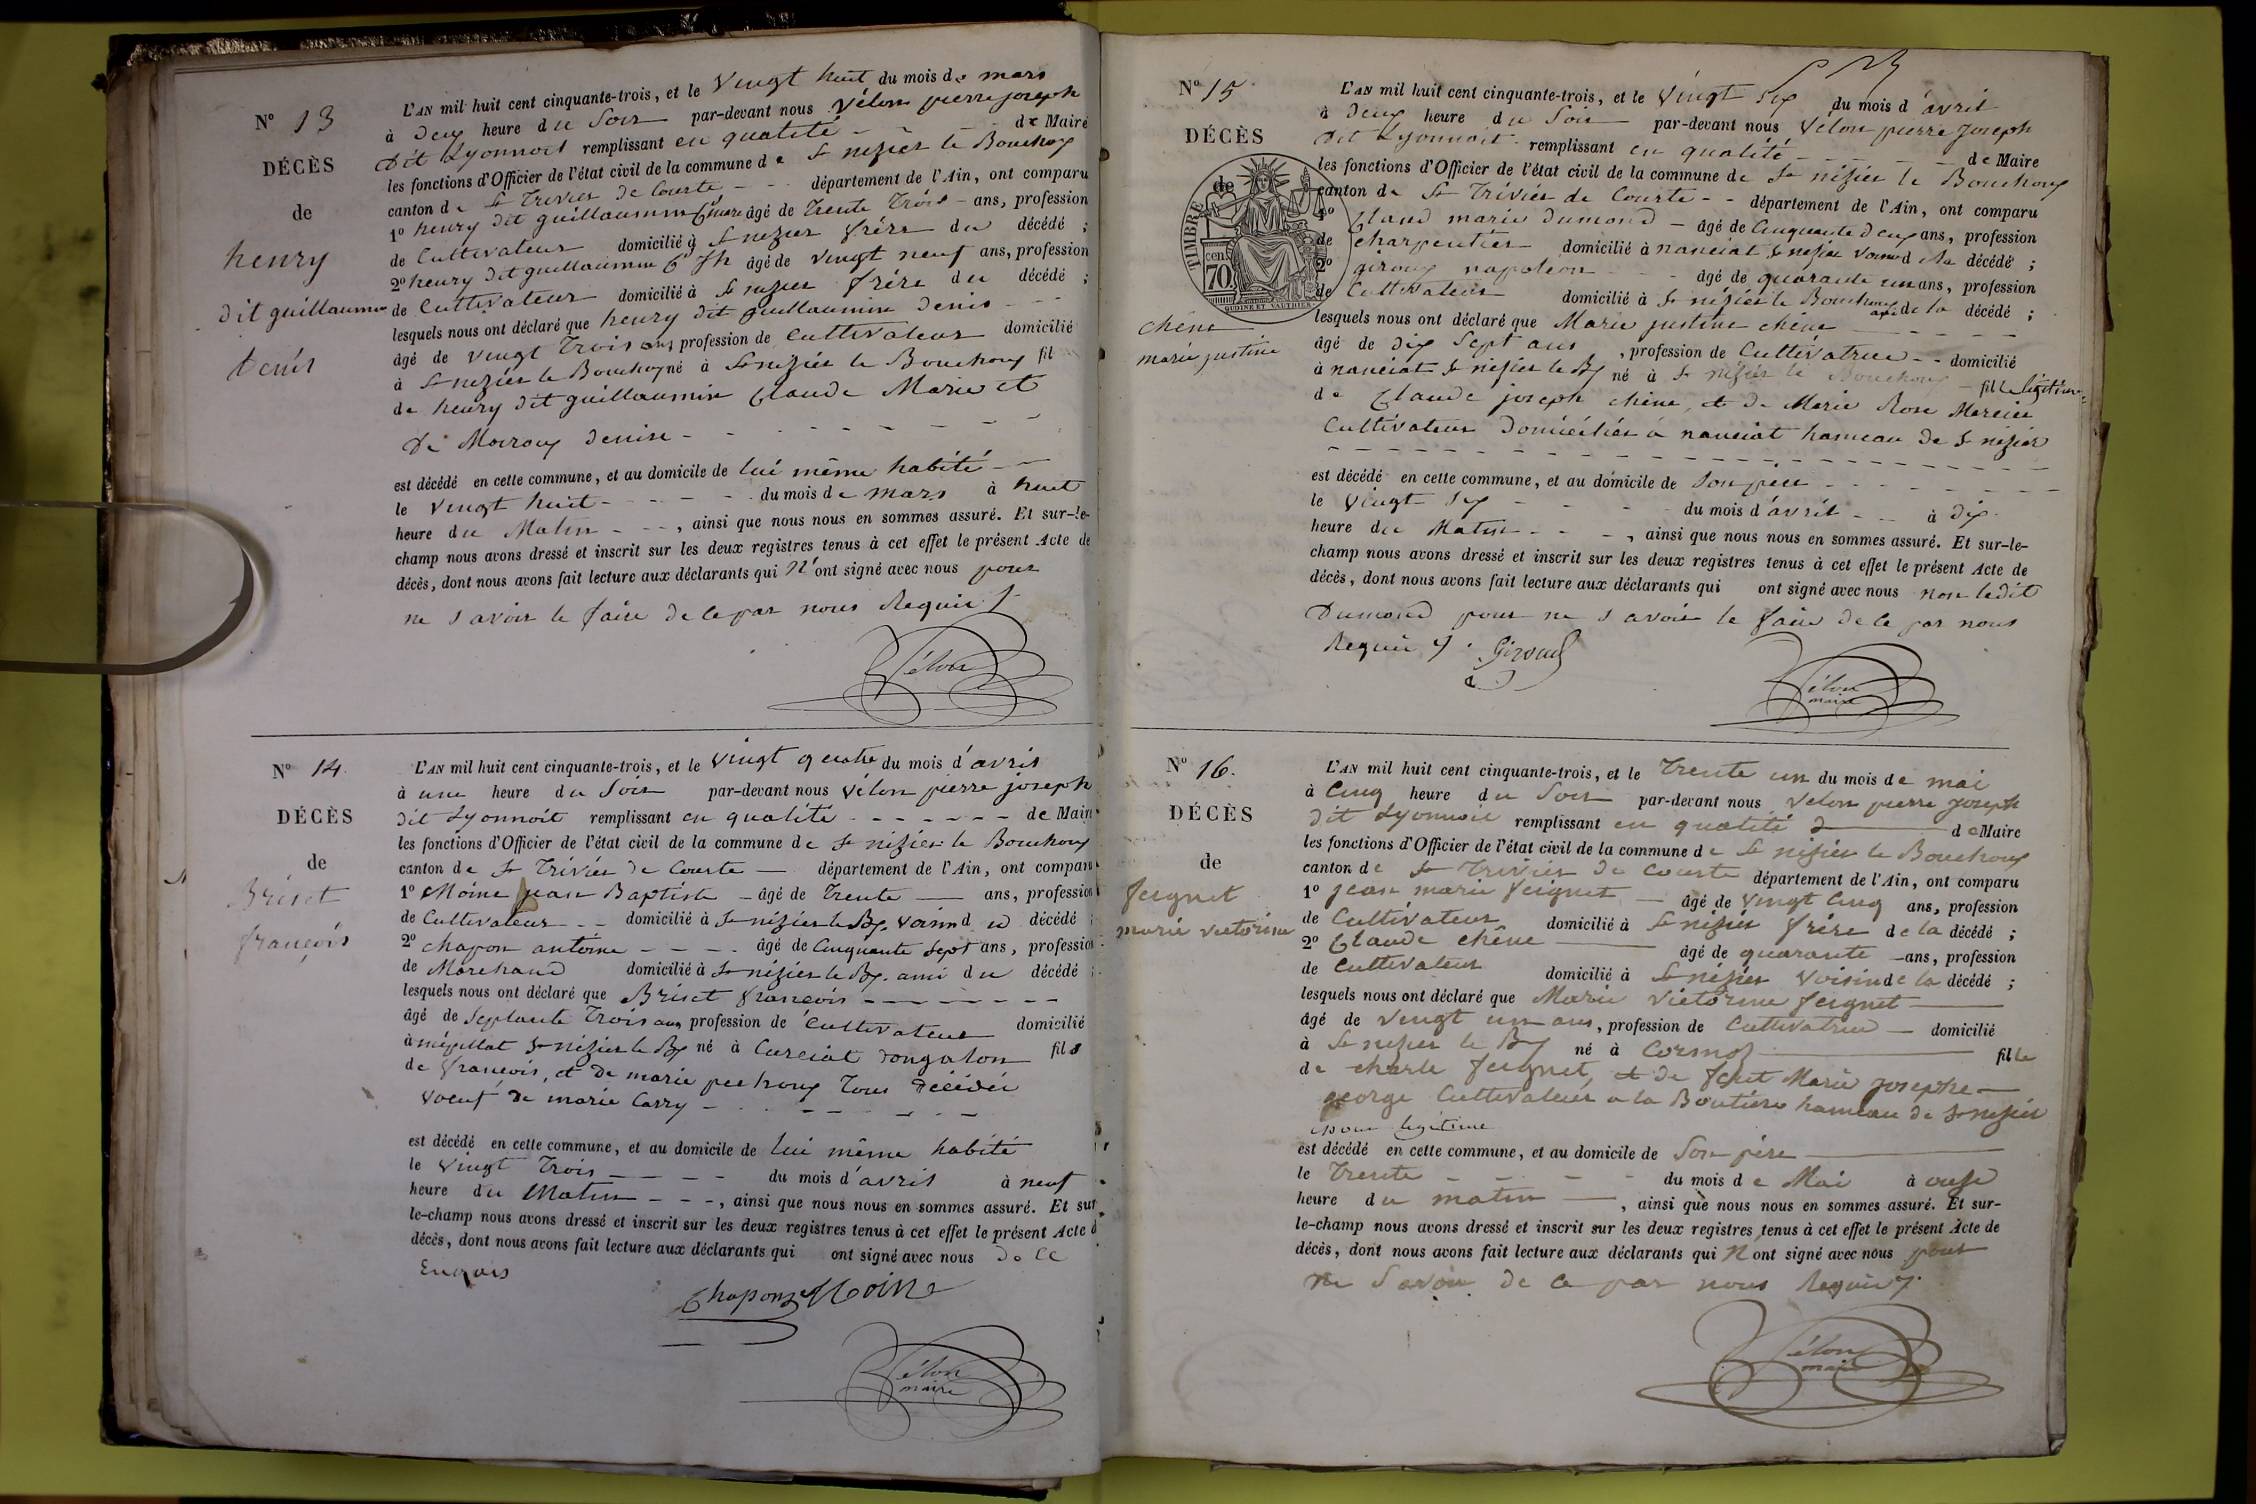 N° 13
DÉCÈS
de
henry
dit guillaumin
denis
L'AN mil huit cent cinquante-trois, et le vingt huit du mois de mars
à deux heure du Soir par-devant nous vélon pierre joseph
dit Lyonnois remplissant en qualité de Maire
les fonctions d'Officier de l'état civil de la commune de St nizier le Bouchoux
canton de St Trivier de Courte département de l'Ain, ont comparu
1° henry dit guillaumin âgé de Trente Trois ans, profession
de Cultivateur domicilié à St nizier frère du décédé ;
2° henry dit guillaumin âgé de vingt neuf ans, profession
de Cultivateur domicilié à St nizier frère du décédé ;
lesquels nous ont déclaré que henry dit guillaumin denis
âgé de vingt Trois ans profession de Cultivateur domicilié
à St nizier le Bouchoux né à St nizier le Bouchoux fil
de henry dit guillaumin Claude Marie et
de Moiroux denise
est décédé en cette commune, et au domicile de lui même habité
le vingt huit du mois de mars à huit
heure du Matin, ainsi que nous nous en sommes assuré. Et sur-le-
champ nous avons dressé et inscrit sur les deux registres tenus à cet effet le présent Acte de
décès, dont nous avons fait lecture aux déclarants qui n'ont signé avec nous pour
ne savoir le faire de ce par nous Requis
Vélon
N° 14
DÉCÈS
de
Briset
françois
L'AN mil huit cent cinquante-trois, et le vingt quatre du mois d'avril
à une heure du Soir par-devant nous vélon pierre joseph
dit Lyonnoit remplissant en qualité de Maire
les fonctions d'Officier de l'état civil de la commune de St nizier le Bouchoux
canton de St Trivier de Courte département de l'Ain, ont comparu
1° Moine jean Baptiste âgé de Trente ans, profession
de Cultivateur domicilié à St nizier le Bx voisin du décédé ;
2° chapon antoine âgé de Cinquante Sept ans, profession
de Marchand domicilié à St nizier le Bx ami du décédé ;
lesquels nous ont déclaré que Briset françois
âgé de Septante Trois ans profession de Cultivateur domicilié
à St nizier le Bx né à Curciat dongalon fils
de françois, et de marie Tous décédés
voeuf de marie Carry
est décédé en cette commune, et au domicile de lui même habité
le vingt Trois du mois d'avril à neuf
heure du Matin, ainsi que nous nous en sommes assuré. Et sur
le-champ nous avons dressé et inscrit sur les deux registres tenus à cet effet le présent Acte d
décès, dont nous avons fait lecture aux déclarants qui ont signé avec nous de ce
Enquis
Chapon Moine
Vélon
maire
N° 15
DÉCÈS
de
TIMBRE
cen.
70
OUDINE ET VAUTHIER
chêne
marie justine
L'AN mil huit cent cinquante-trois, et le vingt six du mois d'avril
à deux heure du Soir par-devant nous Vélon pierre joseph
dit Lyonnoit remplissant en qualité de Maire
les fonctions d'Officier de l'état civil de la commune de St nizier le Bouchoux
canton de St Trivier de Courte département de l'Ain, ont comparu
1° Claud marie dumond âgé de Cinquante deux ans, profession
de charpentier domicilié à nanciat St nizier voisin d la décédé ;
2° giroux napoléon âgé de quarante un ans, profession
de Cultivateur domicilié à St nizier le Bouchoux ami de la décédé ;
lesquels nous ont déclaré que Marie justine chêne
âgé de dix Sept ans, profession de Cultivatrice domicilié
à nanciat St nizier le Bx né à St nizier le Bouchoux fille légitime
de Claude joseph chêne, et de Marie Rose Mercier
Cultivateur domiciliés à nanciat hameau de St nizier
est décédé en cette commune, et au domicile de Son père
le vingt six du mois d'avril à dix
heure du Matin, ainsi que nous nous en sommes assuré. Et sur-le-
champ nous avons dressé et inscrit sur les deux registres tenus à cet effet le présent Acte de
décès, dont nous avons fait lecture aux déclarants qui ont signé avec nous non ledit
Dumond pour ne savoir le faire de ce par nous
Requis Giroud
Vélon
maire
N° 16.
DÉCÈS
de
feignet
marie victorine
L'AN mil huit cent cinquante-trois, et le Trente un du mois de mai
à Cinq heure du Soir par-devant nous Velon pierre joseph
dit Lyonnoit remplissant en qualité de Maire
les fonctions d'Officier de l'état civil de la commune de St nizier le Bouchoux
canton de St Trivier de Courte département de l'Ain, ont comparu
1° jean marie feignet âgé de vingt Cinq ans, profession
de Cultivateur domicilié à St nizier frère de la décédé ;
2° Claude chêne âgé de quarante ans, profession
de Cultivateur domicilié à St nizier voisin de la décédé ;
lesquels nous ont déclaré que Marie Victorine feignet
âgé de vingt un ans, profession de Cultivatrice domicilié
à St nizier le Bx né à Cormoz fille
de charle feignet, et de Marie Josephe
george Cultivateur a la Boutière hameau de St nizier
légitime
est décédé en cette commune, et au domicile de Son père
le Trente du mois de Mai à onze
heure du matin, ainsi que nous nous en sommes assuré. Et sur-
le-champ nous avons dressé et inscrit sur les deux registres tenus à cet effet le présent Acte de
décès, dont nous avons fait lecture aux déclarants qui n'ont signé avec nous pour
ne Savoir de ce par nous Requis
Vélon
maire